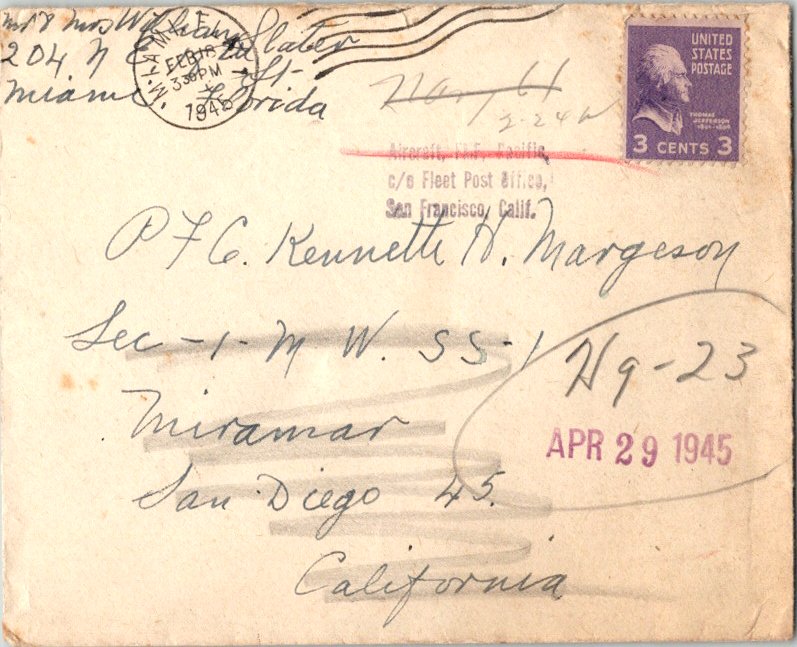 Mr & Mrs William Slater
204 N
St-
Miami Florida
MIAMI, FLA.
FEB 18
3 30 PM
1945
UNITED
STATES
POSTAGE
THOMAS
JEFFERSON
1801-1809
3 CENTS 3
2-24
Aircraft, FMF, Pacific,
c/o Fleet Post Office,
San Francisco, Calif.
PFC. Kenneth H. Margeson
Sec-1-M W. SS-1
Miramar
San Diego 45.
California
Hq-23
APR 29 1945